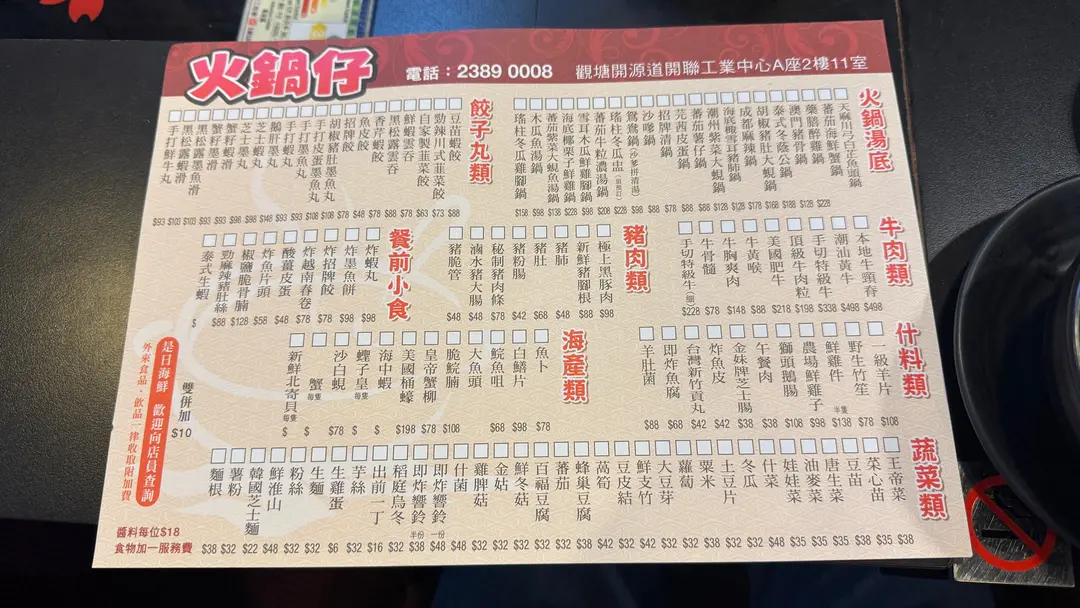 火鍋仔
電話：2389 0008
觀塘開源道開聯工業中心A座2樓11室
火鍋湯底
天麻川弓白芷魚頭鍋
蕃茄海鮮蟹鍋
藥膳醉雞鍋
澳門豬骨鍋
泰式冬蔭公鍋
胡椒豬肚大蜆鍋
成都麻辣鍋
潮州紫菜大蜆鍋
蕃茄薯仔鍋
芫茜皮蛋鍋
招牌清鍋
沙嗲鍋
鴛鴦鍋(沙嗲拼清湯)
瑤柱冬瓜盅
蕃茄牛粒濃湯鍋
雪耳木瓜鮮雞腳鍋
海底椰栗子鮮雞鍋
蕃茄紫菜大蜆魚湯鍋
木瓜魚湯鍋
瑤柱冬瓜雞腳鍋
$158 $98 $138 $228 $98 $208 $228 $98 $88 $78 $88 $88 $128 $128 $178 $168 $188 $128 $228
餃子丸類
豆苗蝦餃
勁辣川式韭菜餃
自家製韭菜餃
鮮蝦雲吞
黑松露雲吞
香芹蝦餃
魚皮餃
招牌餃
胡椒豬肚墨魚丸
手打皮蛋墨魚丸
手打墨魚丸
手打蝦丸
鵝肝墨丸
芝士蝦丸
芝士墨丸
蟹籽蝦滑
蟹籽墨滑
黑松露墨魚滑
黑松露蝦滑
手打鮮牛丸
$93 $103 $103 $93 $93 $98 $98 $148 $93 $93 $108 $108 $78 $48 $78 $88 $88 $78 $63 $73 $88
牛肉類
本地牛頸脊
潮汕黃牛
手切特級牛
頂級牛肉粒
美國肥牛
牛黃喉
牛胸爽肉
牛骨髓
手切特級牛(細)
$228 $78 $148 $88 $218 $198 $338 $498 $498
豬肉類
極上黑豚肉
新鮮豬腳根
豬肺
豬肚
豬粉腸
秘制豬肉條
滷水豬大腸
豬脆管
$48 $48 $78 $42 $68 $48 $88 $98
餐前小食
炸蝦丸
炸墨魚餅
炸招牌餃
炸越南春卷
酸薑皮蛋
炸魚片頭
椒鹽脆骨腩
勁麻辣豬肚絲
泰式生蝦
$ $88 $128 $58 $48 $78 $78 $98 $98
什料類
一級羊片
野生竹笙
鮮雞件 半隻
農場鮮雞子
獅頭鵝腸
午餐肉
金妹牌芝士腸
炸魚皮
台灣新竹貢丸
即炸魚腐
羊肚菌
$88 $68 $42 $42 $38 $38 $108 $98 $138 $78 $108
海產類
魚卜
白鱔片
鯇魚咀
大魚頭
脆鯇腩
皇帝蟹柳
美國桶蠔
海中蝦
蟶子皇 每隻
沙白蜆
蟹 每隻
新鮮北寄貝 每隻
$ $ $78 $ $ $198 $78 $108 $68 $98 $78
蔬菜類
王帝菜
菜心苗
豆苗
唐生菜
油麥菜
娃娃菜
什菜
冬瓜
土豆片
粟米
蘿蔔
大豆芽
鮮支竹
豆皮結
萵筍
蜂巢豆腐
蕃茄
百福豆腐
鮮冬菇
金菇
雞脾菇
什菌
即炸響鈴 一份
即炸響鈴 半份
稻庭烏冬
出前一丁
芋絲
生雞蛋
生麵
粉絲
鮮淮山
韓國芝士麵
薯粉
麵根
$38 $32 $22 $48 $32 $32 $6 $32 $16 $32 $38 $48 $48 $32 $32 $32 $32 $32 $38 $42 $42 $32 $32 $32 $32 $32 $32 $48 $35 $35 $38 $35 $38
是日海鮮 歡迎向店員查詢
外來食品、飲品一律收取附加費
雙併加
$10
醬料每位$18
食物加一服務費